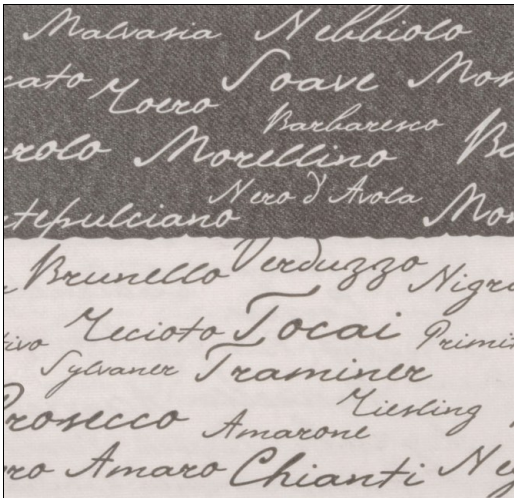 Malvasia Nebbiolo
cato Roero Soave Mos
Barbaresco
rolo Morellino Ba
Nero d'Avola
tepulciano Mon
Brunello Verduzzo Nigr
tivo Recioto Tocai Primit
Sylvaner Traminer
Prosecco Amarone Riesling
ro Amaro Chianti Ne